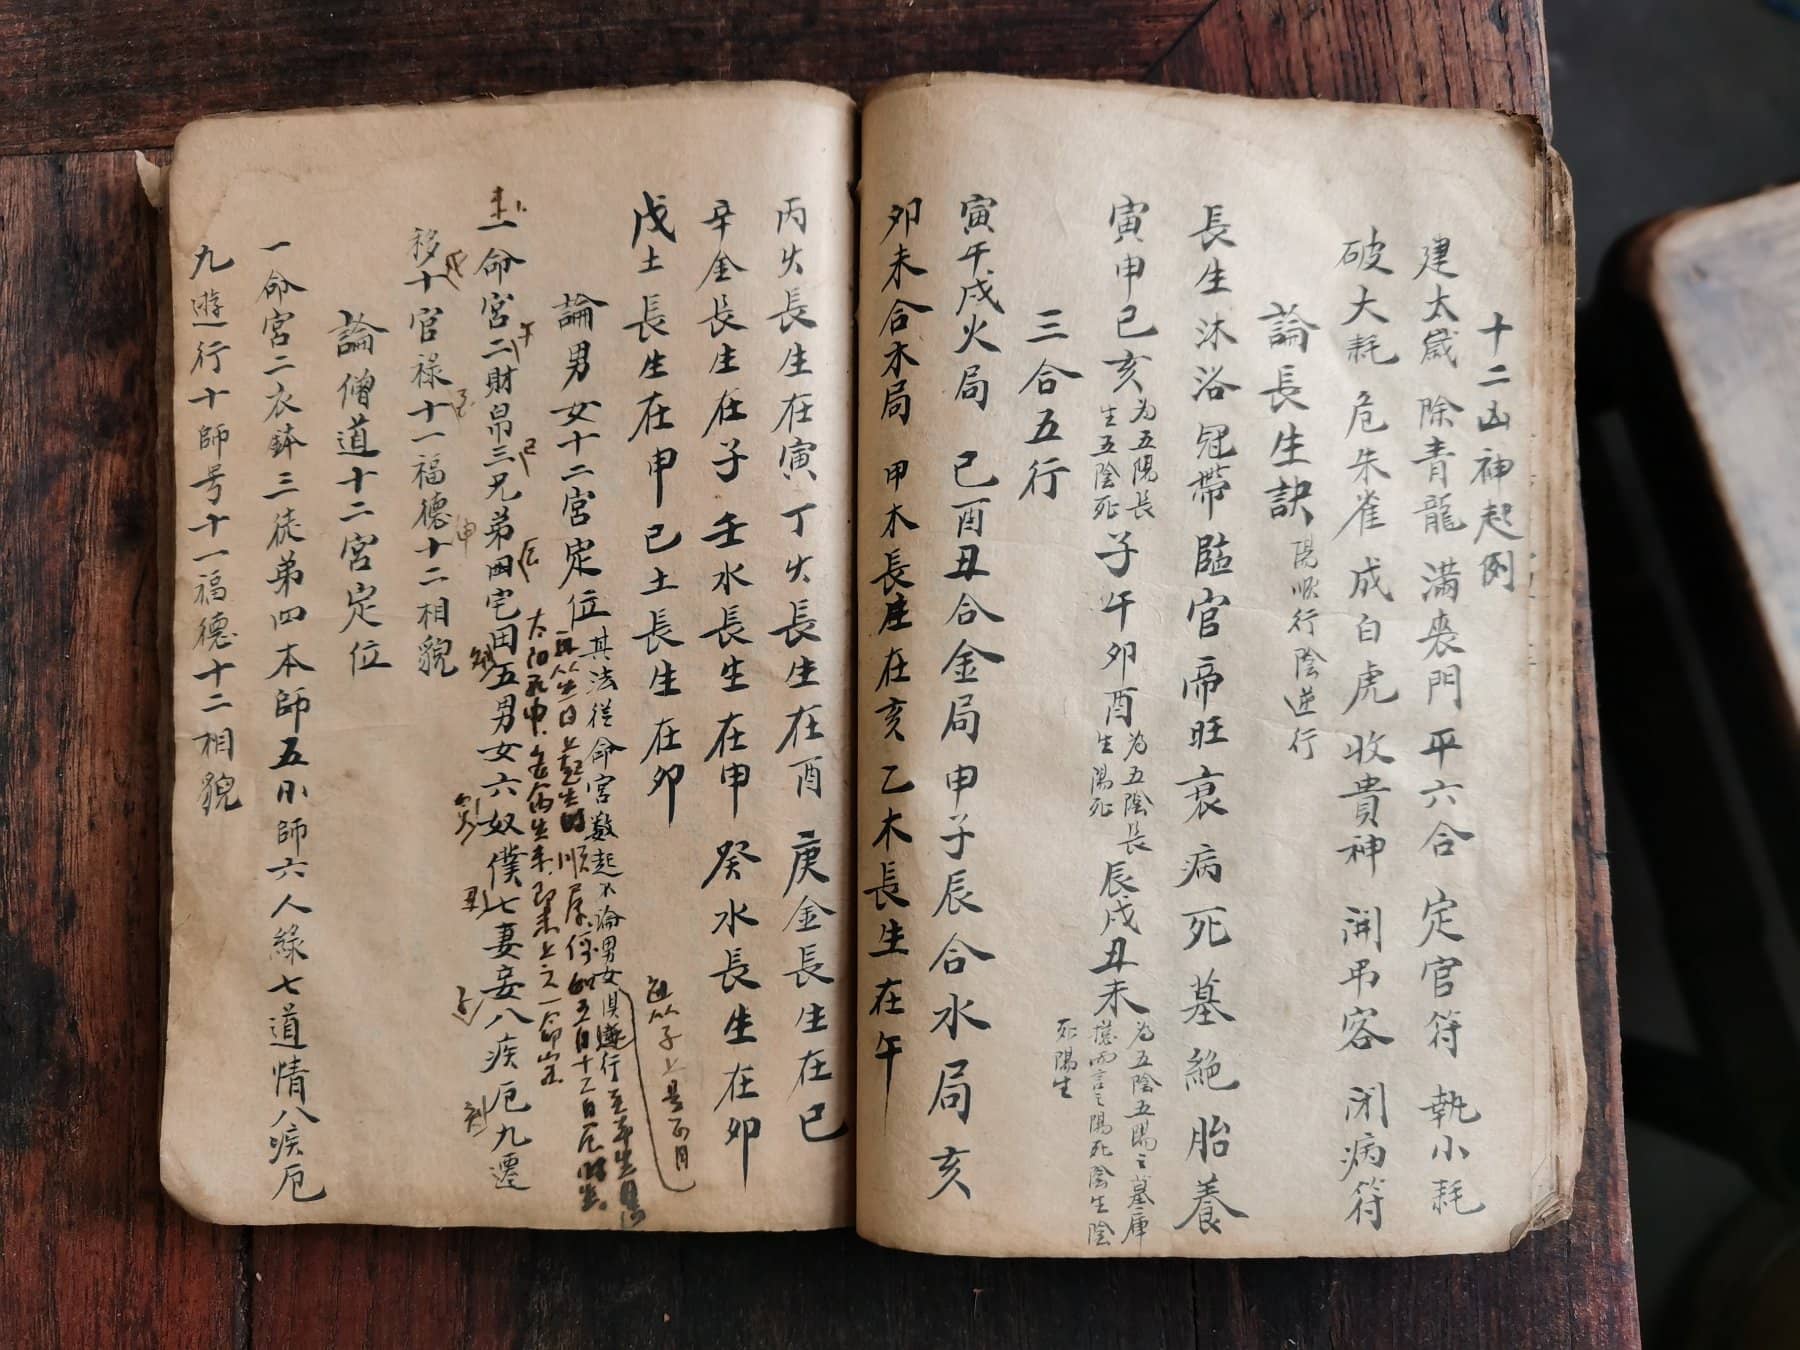 十二凶神起例
建太歲 除青龍 滿喪門 平六合 定官符 執小耗
破大耗 危朱雀 成白虎 收貴神 開弔客 閉病符
論長生訣 陽順行陰逆行
長生沐浴冠帶臨官帝旺衰病死墓絕胎養
寅申巳亥 為五陽長生五陰死 子午卯酉 為五陰長生陽死 辰戌丑未 為五陰五陽之墓庫 而言之陽死陰生陰死陽生
三合五行
寅午戌火局 巳酉丑合金局申子辰合水局亥
卯未合木局 甲木長生在亥乙木長生在午
丙火長生在寅丁火長生在酉庚金長生在巳
辛金長生在子壬水長生在申癸水長生在卯
戊土長生在申己土長生在卯
論男女十二宮定位 其法從命宮數起不論男女俱逆行
一命宮二財帛三兄弟四田宅五男女六奴僕七妻妾八疾厄九遷
移十官祿十一福德十二相貌
論僧道十二宮定位
一命宮二衣鉢三徒弟四本師五小師六人緣七道情八疾厄
九遊行十師号十一福德十二相貌